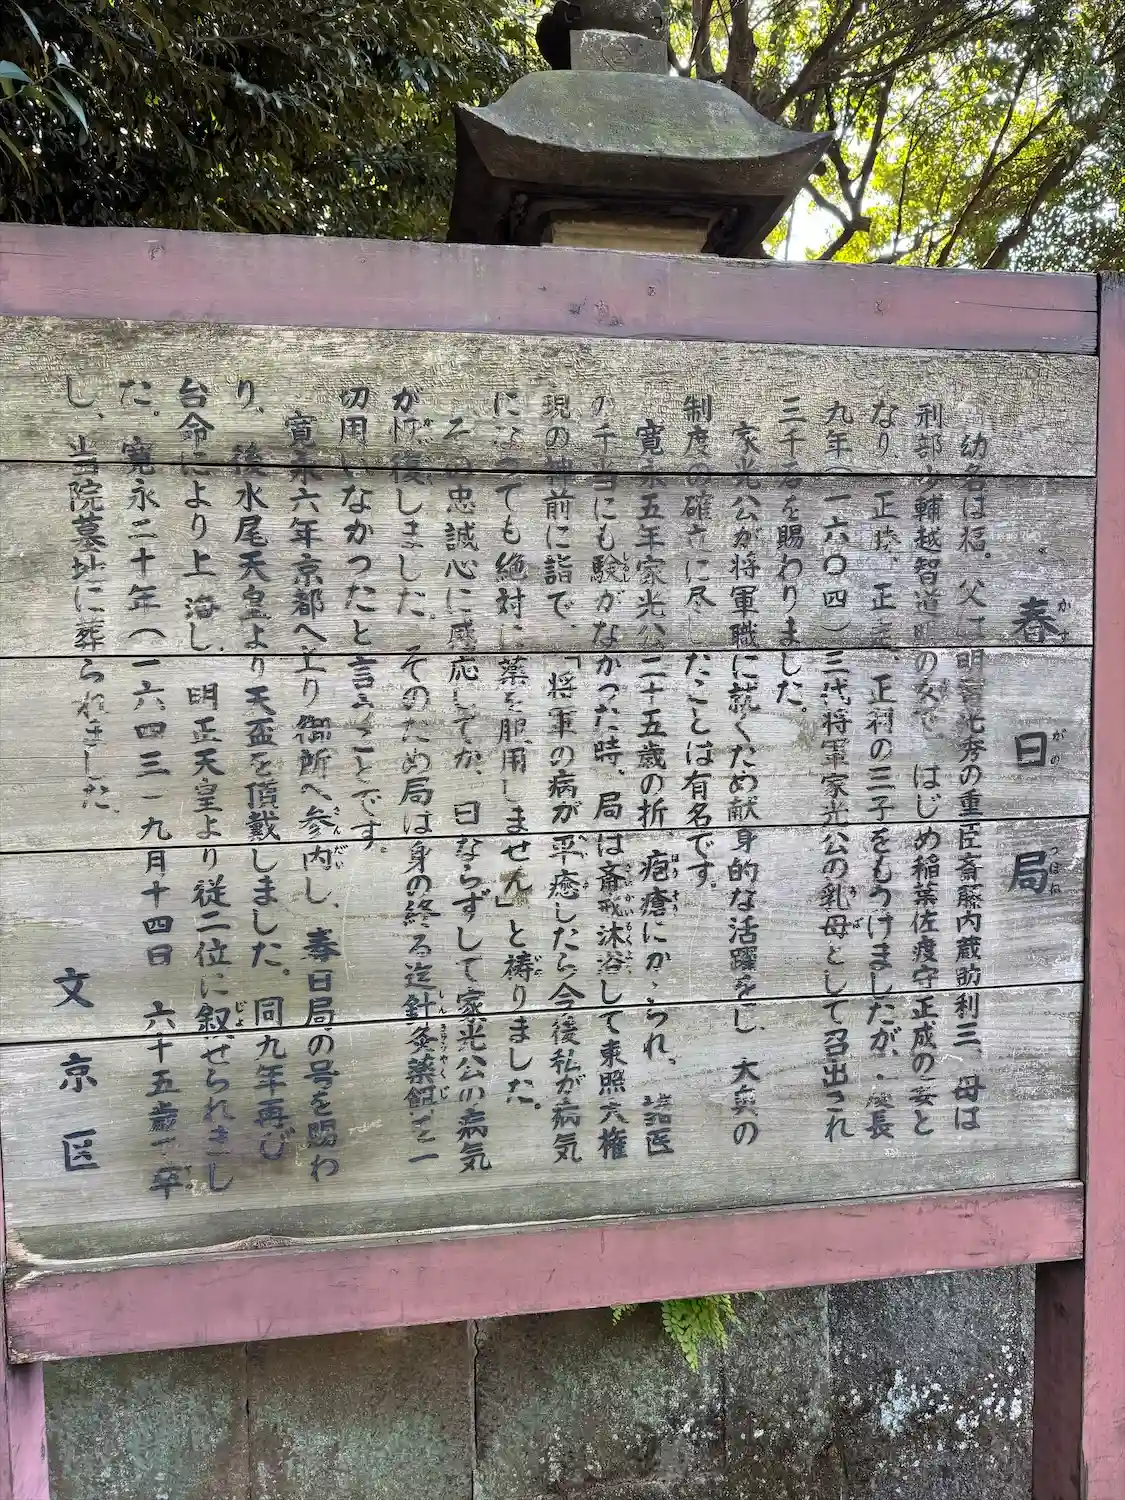 春日局
かすがのつぼね
幼名は福。父は明智光秀の重臣斎藤内蔵助利三、母は
刑部少輔越智道明の女で、はじめ稲葉佐渡守正成の妾と
なり、正勝、正定、正利の三子をもうけましたが、慶長
九年(一六〇四)三代将軍家光公の乳母として召出され
うば
三千石を賜わりました。
家光公が将軍職に就くため献身的な活躍をし、大奥の
制度の確立に尽したことは有名です。
寛永五年家光公二十五歳の折、疱瘡にかゝられ、諸医
ほうそう
の手当にも験がなかった時、局は斎戒沐浴して東照大権
しるし
さいかいもくよく
現の神前に詣で、「将軍の病が平癒したら今後私が病気
になっても絶対に薬を服用しません」と祷りました。
その忠誠心に感応してか、日ならずして家光公の病気
が恢復しました。そのため局は身の終る迄針灸薬餌を一
かい
しんきゅうやくじ
切用いなかったと言うことです。
寛永六年京都へ上り御所へ参内し、春日局の号を賜わ
さんだい
り、後水尾天皇より天盃を頂戴しました。同九年再び
台命により上洛し、明正天皇より従二位に叙せられまし
じょ
た。寛永二十年(一六四三)九月十四日 六十五歳で卒
し、当院墓址に葬られました。
文京区